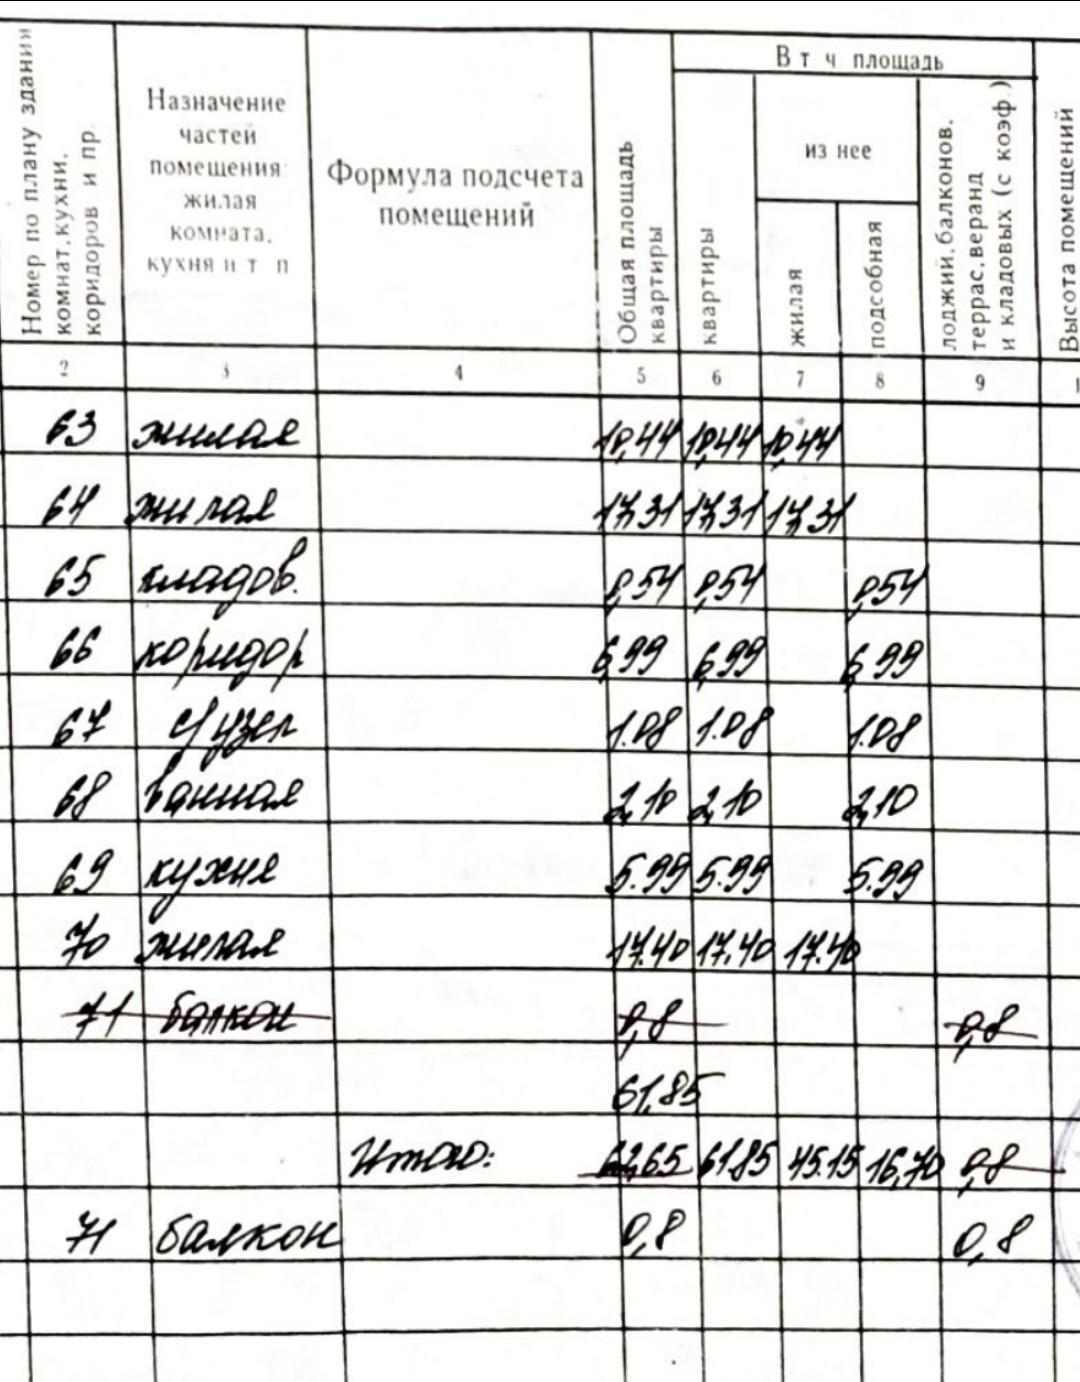 Номер по плану здания комнат, кухни, коридоров и пр.
Назначение частей помещения: жилая комната, кухня и т п
Формула подсчета помещений
Общая площадь квартиры
В т ч площадь
квартиры
из нее
жилая
подсобная
лоджий, балконов, террас, веранд и кладовых (с коэф.)
Высота помещений
2 3 4 5 6 7 8 9 1
63 жилая 10,44 10,44 10,44
64 жилая 17,31 17,31 17,31
65 кладов. 0,54 0,54 0,54
66 коридор 6,99 6,99 6,99
67 с/узел 1.08 1.08 1.08
68 ванная 2,10 2,10 2,10
69 кухня 5.99 5.99 5.99
70 жилая 17.40 17.40 17.40
71 балкон 0,8 0,8
61,85
Итого: 62,65 61,85 45.15 16,70 0,8
71 балкон 0,8 0,8